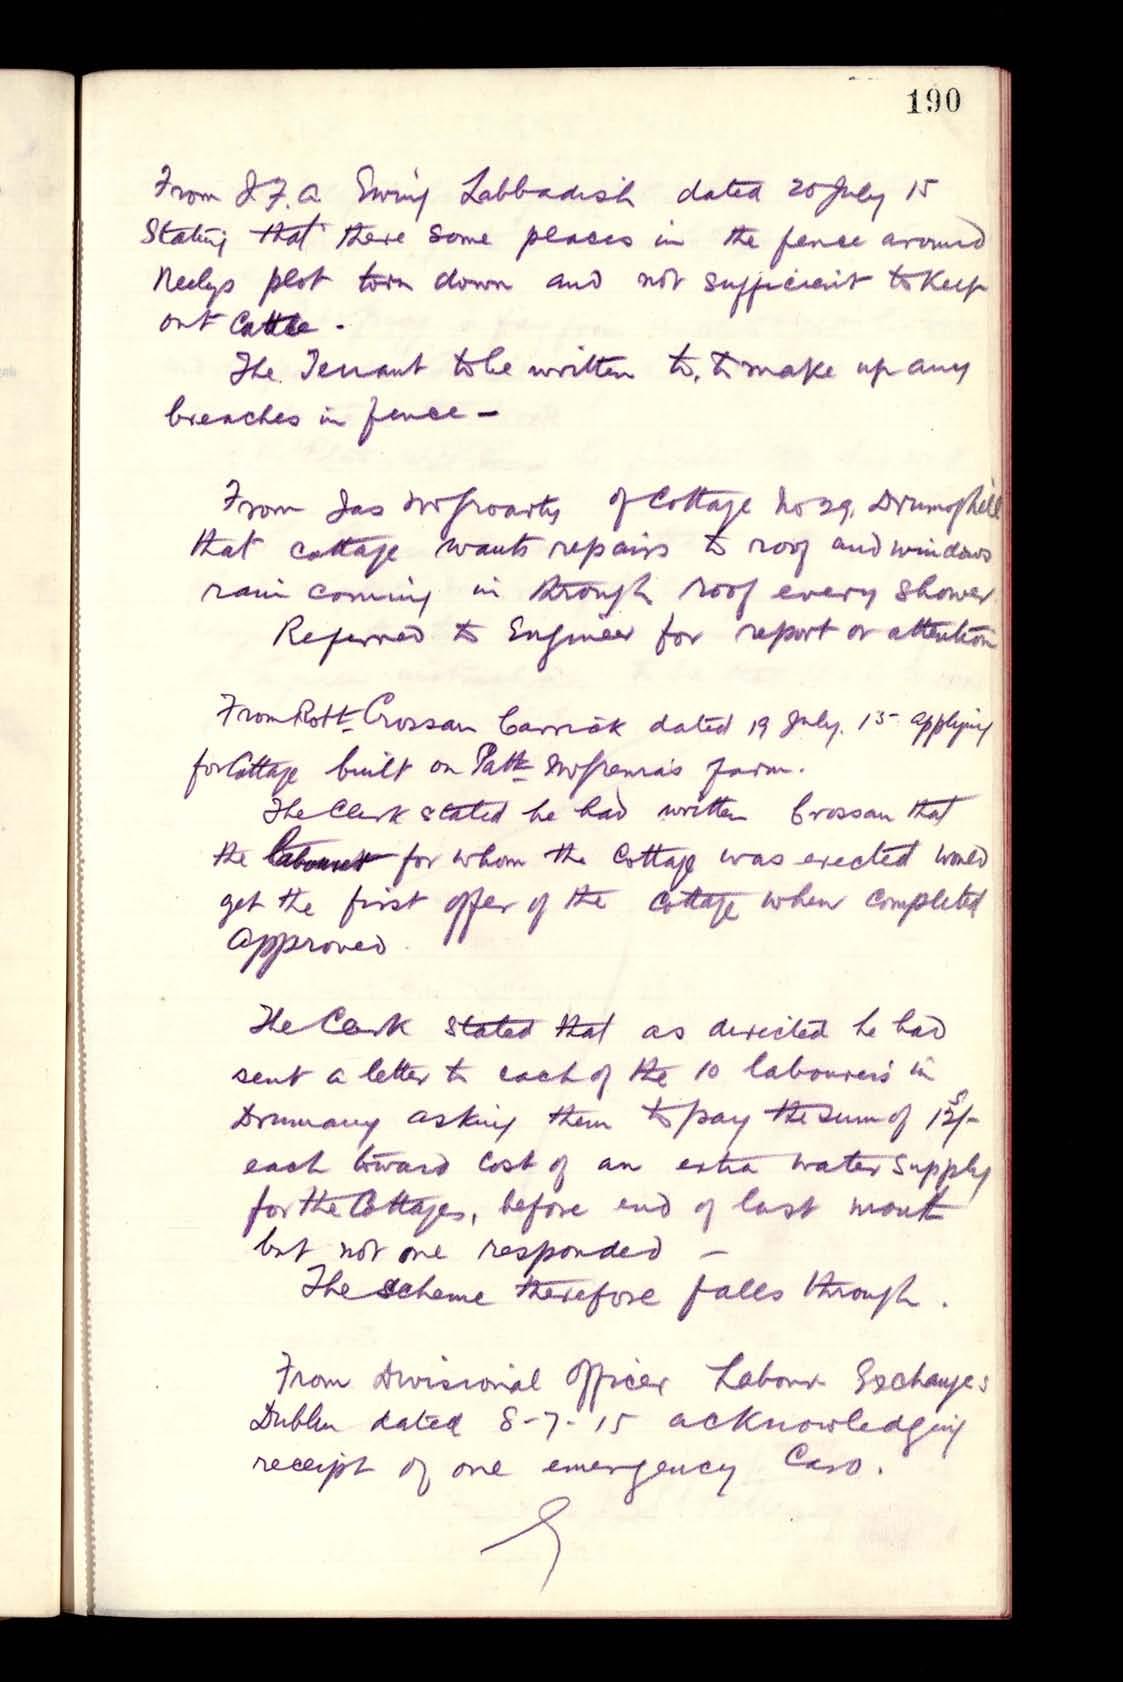 190
From J. F. A. Ewing Labbadish dated 20 July 15
Stating that there some places in the fence around
Neelys plot torn down and not sufficient to keep
out Cattle -
The Tenant to be written to, to make up any
breaches in fence -
From Jas McGroarty of Cottage No 29, Drumoghill
that cottage wants repairs to roof and windows
rain coming in through roof every shower
Referred to Engineer for report or attention
From Robt. Crossan Carrick dated 19 July. 15 applying
for Cottage built on Patk farm.
The Clerk stated he had written Crossan that
the labourer for whom the Cottage was erected would
get the first offer of the Cottage when completed
Approved
The Clerk stated that as directed he had
sent a letter to each of the 10 labourers in
Drummany asking them to pay the sum of 12/-
each toward Cost of an extra water supply
for the Cottages, before end of last month
but not one responded -
The scheme therefore falls through.
From Divisional Officer Labour Exchanges
Dublin dated 8-7-15 acknowledging
receipt of one emergency Card.